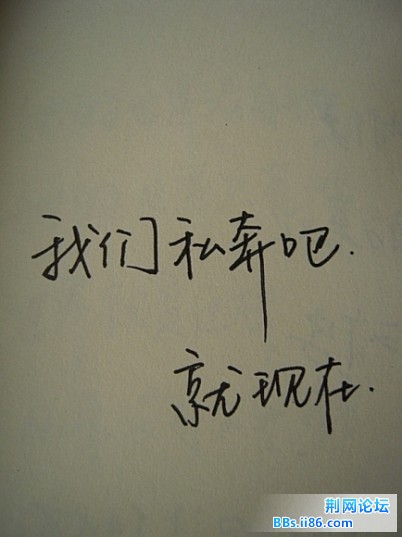 我们私奔吧.
就现在.
荆网论坛
BBs.ii86.com